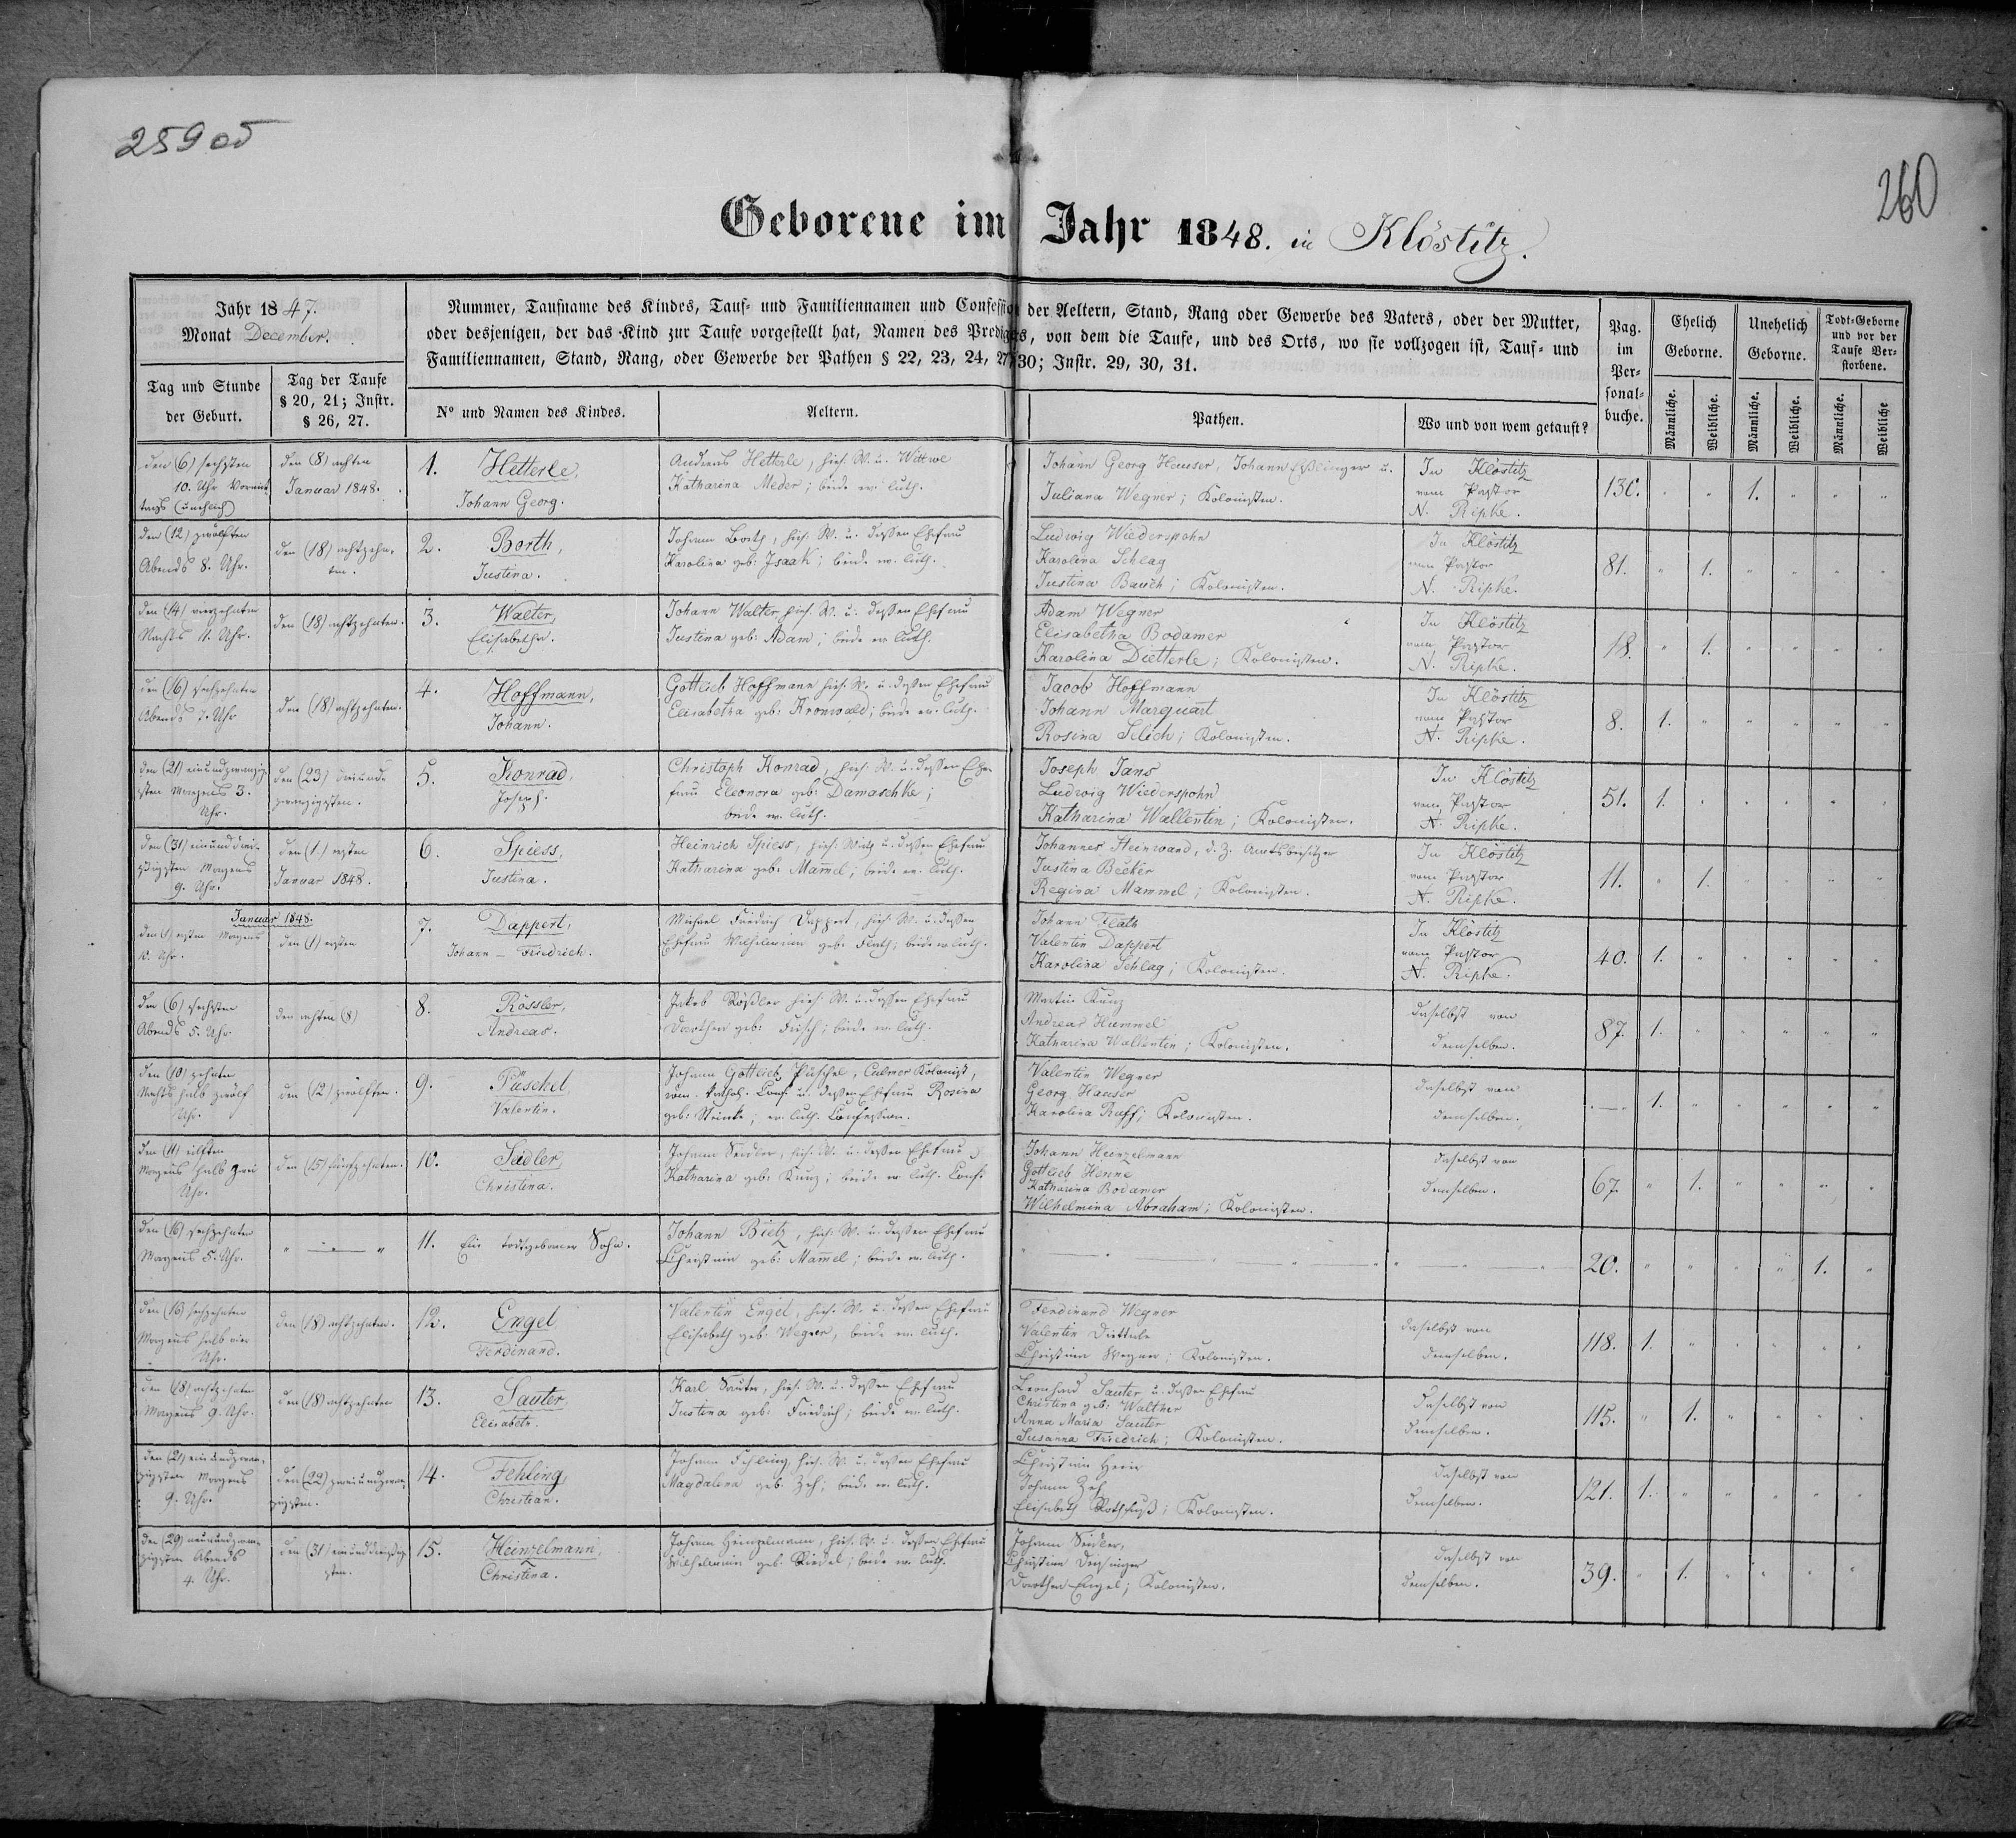 259 об
260
Geborene im Jahr 1848. in Klöstitz.
Jahr 1847.
Monat December.
Tag und Stunde
der Geburt.
Tag der Taufe
§ 20, 21; Instr.
§ 26, 27.
Nummer, Taufname des Kindes, Tauf- und Familiennamen und Confession der Aeltern, Stand, Rang oder Gewerbe des Vaters, oder der Mutter,
oder desjenigen, der das Kind zur Taufe vorgestellt hat, Namen des Predigers, von dem die Taufe, und des Orts, wo sie vollzogen ist, Tauf- und
Familiennamen, Stand, Rang, oder Gewerbe der Pathen § 22, 23, 24, 27, 30; Instr. 29, 30, 31.
No und Namen des Kindes.
Aeltern.
Pathen.
Wo und von wem getauft?
Pag.
im
Per-
sonal-
buche.
Ehelich
Geborne.
Unehelich
Geborne.
Todt-Geborne
und vor der
Taufe Ver-
storbene.
Männliche.
Weibliche.
Männliche.
Weibliche.
Männliche.
Weibliche
den (6) sechsten
10. Uhr Vormit-
tags (unehlich)
den (8) achten
Januar 1848.
1. Hetterle,
Johann Georg.
Andreas Hetterle, hies. W. u. Wittwe
Katharina Meder; beide ev. luth.
Johann Georg Hauser, Johann Eßlinger u.
Juliana Wegner; Kolonisten.
In Klöstitz
vom Pastor
N. Ripke.
130. " " 1. " " "
den (12) zwölften
Abends 8. Uhr.
den (18) achtzehn-
ten.
2. Borth,
Justina.
Johann Borth, hies. W. u. dessen Ehefrau
Karolina geb: Isaak; beide ev. luth.
Ludwig Wiederspohn
Karolina Schlag
Justina Bauch; Kolonisten.
In Klöstitz
vom Pastor
N. Ripke.
81. " 1. " " " "
den (14) vierzehnten
Nachts 11. Uhr.
den (18) achtzehnten.
3. Walter,
Elisabetha.
Johann Walter hies. W. u. dessen Ehefrau
Justina geb: Adam; beide ev. luth.
Adam Wegner
Elisabetha Bodamer
Karolina Dietterle; Kolonisten.
In Klöstitz
vom Pastor
N. Ripke.
18. " 1. " " " "
den (16) sechzehnten
Abends 7. Uhr
den (18) achtzehnten.
4. Hoffmann,
Johann.
Gottlieb Hoffmann hies. W. u. dessen Ehefrau
Elisabetha geb: Kronwald; beide ev. luth.
Jacob Hoffmann
Johann Marquart
Rosina Selich; Kolonisten.
In Klöstitz
vom Pastor
N. Ripke.
8. 1. " " " " "
den (21) einundzwanzig-
sten Morgens 3.
Uhr.
den (23) dreiund-
zwanzigsten.
5. Konrad,
Joseph.
Christoph Konrad, hies. W. u. dessen Ehe-
frau Eleonora geb: Damaschke;
beide ev. luth.
Joseph Jans
Ludwig Wiederspohn
Katharina Wallentin; Kolonisten.
In Klöstitz
vom Pastor
N. Ripke.
51. 1. " " " " "
den (31) einunddrei-
ßigsten Morgens
9. Uhr.
den (1.) ersten
Januar 1848.
6. Spiess,
Justina.
Heinrich Spiess, hies. Wirth u. dessen Ehefrau
Katharina geb: Mam̄el; beide ev. luth.
Johannes Steinwand, d. Z. Amtsbeisitzer
Justina Becker
Regina Mammel; Kolonisten.
In Klöstitz
vom Pastor
N. Ripke.
11. " 1. " " " "
Januar 1848.
den (1) ersten Morgens
Uhr.
den (1) ersten
7. Dappert,
Johann-Friedrich.
Michael Friedrich Dappert, hies. W. u. dessen
Ehefrau Wilhelmina geb: Flath; beide ev. luth.
Johann Flath
Valentin Dappert
Karolina Schlag; Kolonisten.
In Klöstitz
vom Pastor
N. Ripke.
40. 1. " " " " "
den (6) sechsten
Abends 5. Uhr.
den achten (8)
8. Rössler,
Andreas.
Jakob Rößler hies. W. u. dessen Ehefrau
Dorothea geb: Frisch; beide ev. luth.
Martin Kunz
Andreas Hummel
Katharina Wallentin; Kolonisten.
daselbst von
demselben.
87. 1. " " " " "
den (10) zehnten
Nachts halb zwölf
Uhr.
den (12) zwölften.
9. Püschel,
Valentin.
Johann Gottlieb Püschel, Culmer Kolonist,
röm. kathol. Conf. u. dessen Ehefrau Rosina
geb: Steinke, ev. luth. Confession.
Valentin Wegner
Georg Hauser
Karolina Ruff; Kolonisten.
daselbst von
demselben.
1. " " " " "
den (11) eilften
Morgens halb zwei
Uhr.
den (15) fünfzehnten.
10. Seidler,
Christina.
Johann Seidler, hies. W. u. dessen Ehefrau
Katharina geb: Kunz; beide ev. luth. Conf.
Johann Heinzelmann
Gottlieb Henne
Katharina Bodamer
Wilhelmina Abraham; Kolonisten.
daselbst von
demselben.
67. " 1. " " " "
den (16) sechzehnten
Morgens 5. Uhr.
11. Ein todtgeborner Sohn.
Johann Bietz, hies. W. u. dessen Ehefrau
Christina geb: Mam̄el; beide ev. luth.
20. " " " " 1. "
den (16) sechzehnten
Morgens halb vier
Uhr.
den (18) achtzehnten.
12. Engel,
Ferdinand.
Valentin Engel, hies. W. u. dessen Ehefrau
Elisabeth geb: Wegner, beide ev. luth.
Ferdinand Wegner
Valentin Dietterle
Christina Wegner; Kolonisten.
daselbst von
demselben.
118. 1. " " " " "
den (18) achtzehnten
Morgens 9. Uhr.
den (18) achtzehnten
13. Sauter,
Elisabeth.
Karl Sauter, hies. W. u. dessen Ehefrau
Justina geb: Friedrich; beide ev. luth.
Leonhard Sauter u. dessen Ehefrau
Christina geb: Walther
Anna Maria Sauter
Susanna Friedrich; Kolonisten.
daselbst von
demselben.
115. " 1. " " " "
den (21) einundzwan-
zigsten Morgens
9. Uhr.
den (22) zweiundzwan-
zigsten.
14. Fehling,
Christian.
Johann Fehling, hies. W. u. dessen Ehefrau
Magdalena geb. Zeh; beide ev. luth.
Christian
Johann Zeh
Elisabeth Rothfuß; Kolonisten.
daselbst von
demselben.
121. 1. " " " " "
den (29) neunundzwan-
zigsten Abends
4. Uhr.
den (31) einunddreißig-
sten.
15. Heinzelmann,
Christina.
Johann Heinzelmann, hies. W. u. dessen Ehefrau
Wilhelmina geb. Riedel; beide ev. luth.
Johann Seidler,
Christina Deisinger
Dorothea Engel; Kolonisten.
daselbst von
demselben.
39. " 1. " " " "